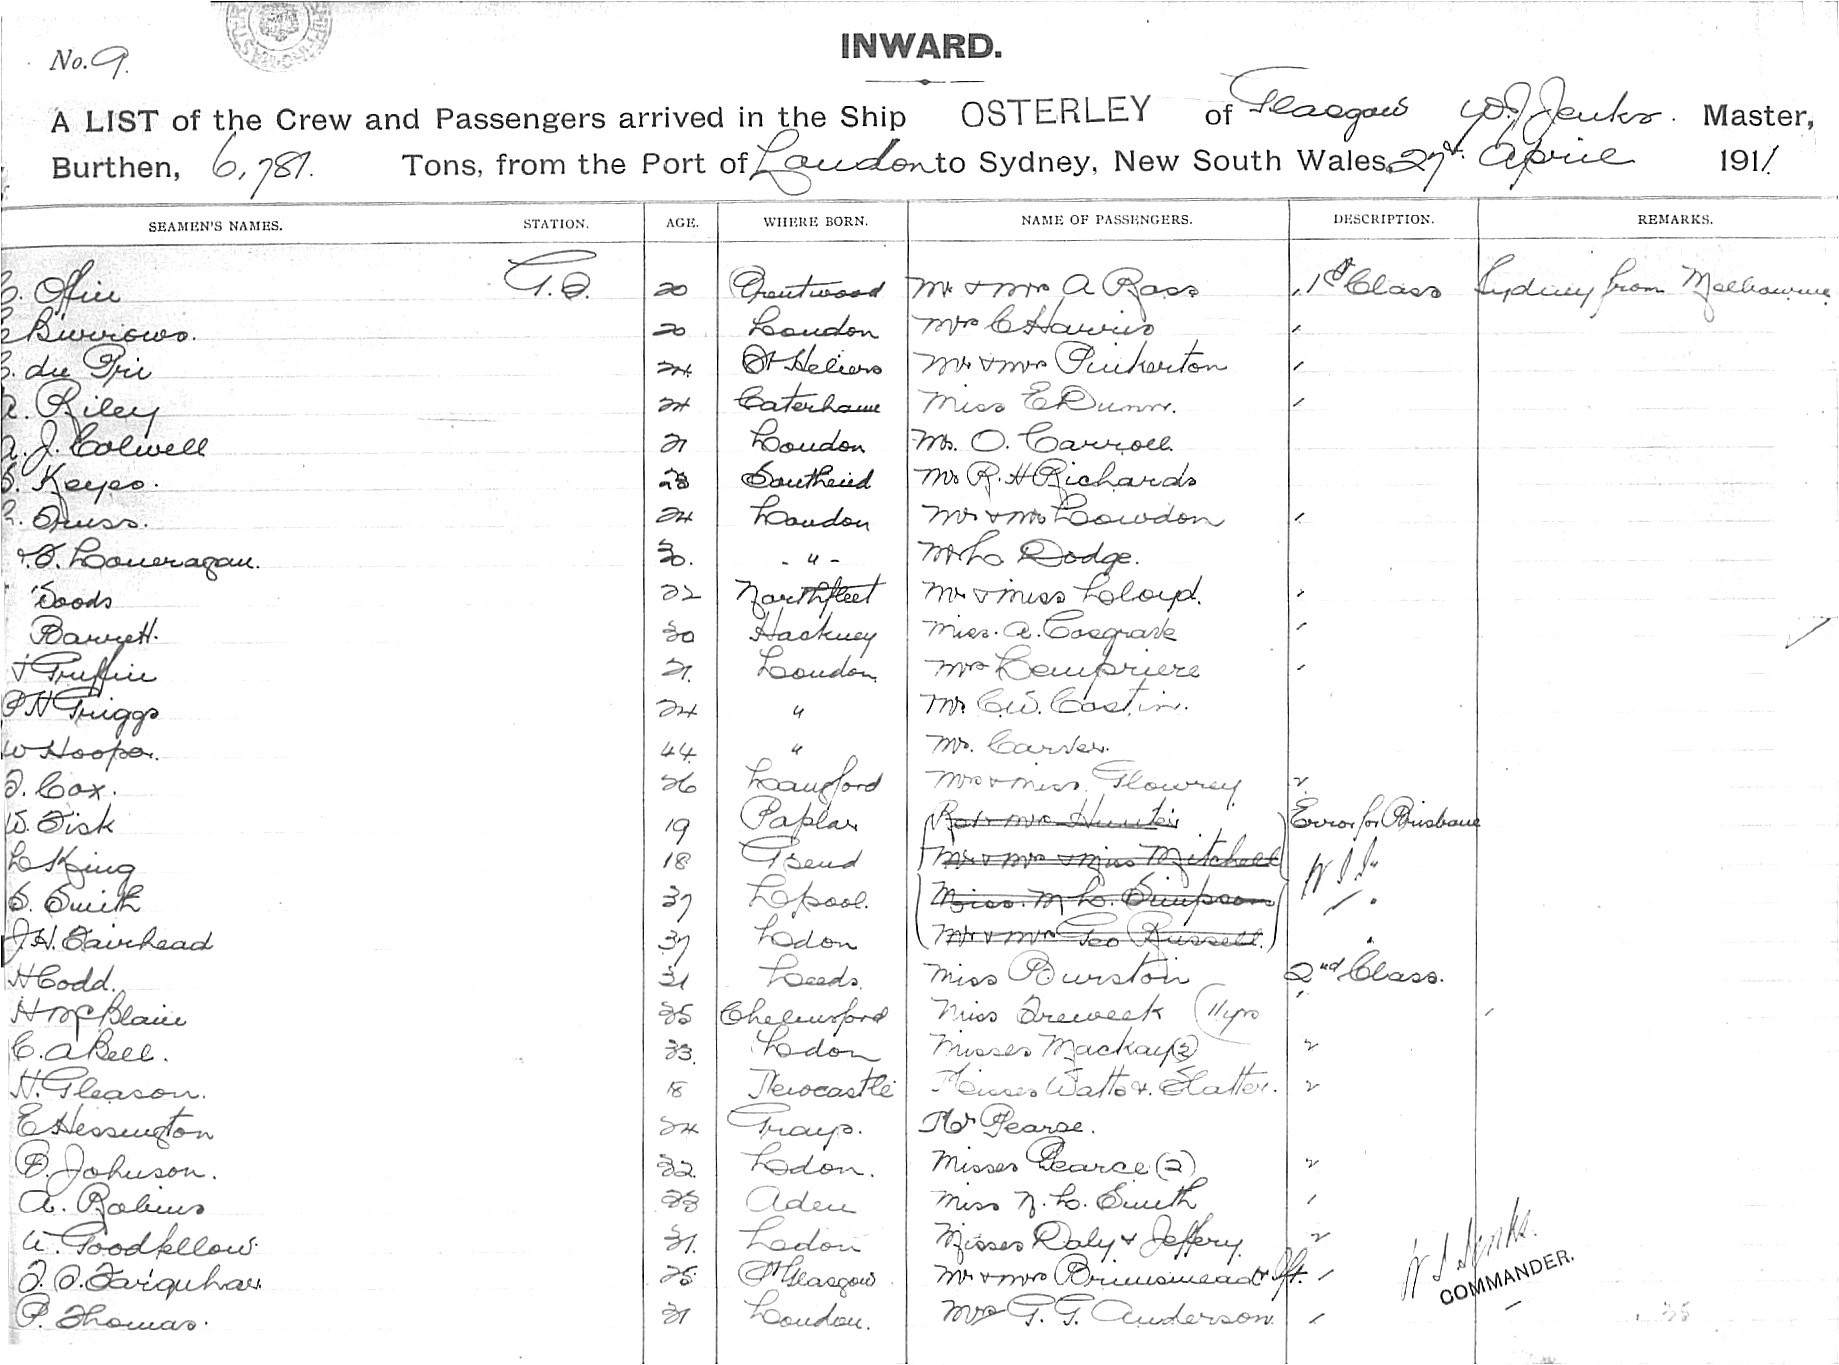 No. 9.
INWARD.
A LIST of the Crew and Passengers arrived in the Ship OSTERLEY of Glasgow W.J. Jenks. Master,
Burthen, 6,781. Tons, from the Port of London to Sydney, New South Wales, 27th April 1911
SEAMEN'S NAMES. STATION. AGE. WHERE BORN. NAME OF PASSENGERS. DESCRIPTION. REMARKS.
G.S. 20 Brentwood Mr & Mrs A Ross 1st Class Sydney from Melbourne
Burrows. 20 London Mrs C Harris
du Pre 24 St Heliers Mr & Mrs Pinkerton
A. Riley 24 Caterham Miss E Dunn.
A. J. Colwell 21 London Mr. O. Carroll
S. Keyes. 28 Southend Mr R. H Richards
24 London Mr & Mrs Lowdon
Loneragan. 30. - " - Mr L Dodge.
Woods 22 Northfleet Mr & Miss Lloyd.
Barrett. 30 Hackney Miss. A. Cosgrave
Griffin 21. London Mrs Lempriere
P H Griggs 24 " Mr. C.W. Costin.
W Hooper. 44. " Mr. Carver.
J. Cox. 26 Langford Mrs & Miss Flowrey
W. Fisk 19 Poplar Mrs Hunter Error for Brisbane
L King 18 Gsend Mr & Mrs & Miss Mitchell
S. Smith 37 Lpool. Miss. M. L. Simpson
J.H. Fairhead 37 Ldon Mr & Mrs Geo Russell.
H Codd. 31 Leeds. Miss Burston 2nd Class.
H McBlain 25 Chelmsford Miss Treweek (11yrs
C. A Bell. 33. Ldon Misses Mackay (2)
H. Gleason. 18 Newcastle Misses Watts & Slatter.
E Hessington 24 Grays. Mr Pearse.
B. Johnson. 32 Ldon. Misses Pearce (2)
A. Robins 33 Aden Miss N. L. Smith
W. Goodfellow. 31. Ldon Misses Daly & Jeffery.
Farquhar 25 Glasgow Mr & Mrs Brinsmead & Ift.
P. Thomas. 21 London. Mrs G. G. Anderson.
W J Jenks.
COMMANDER.